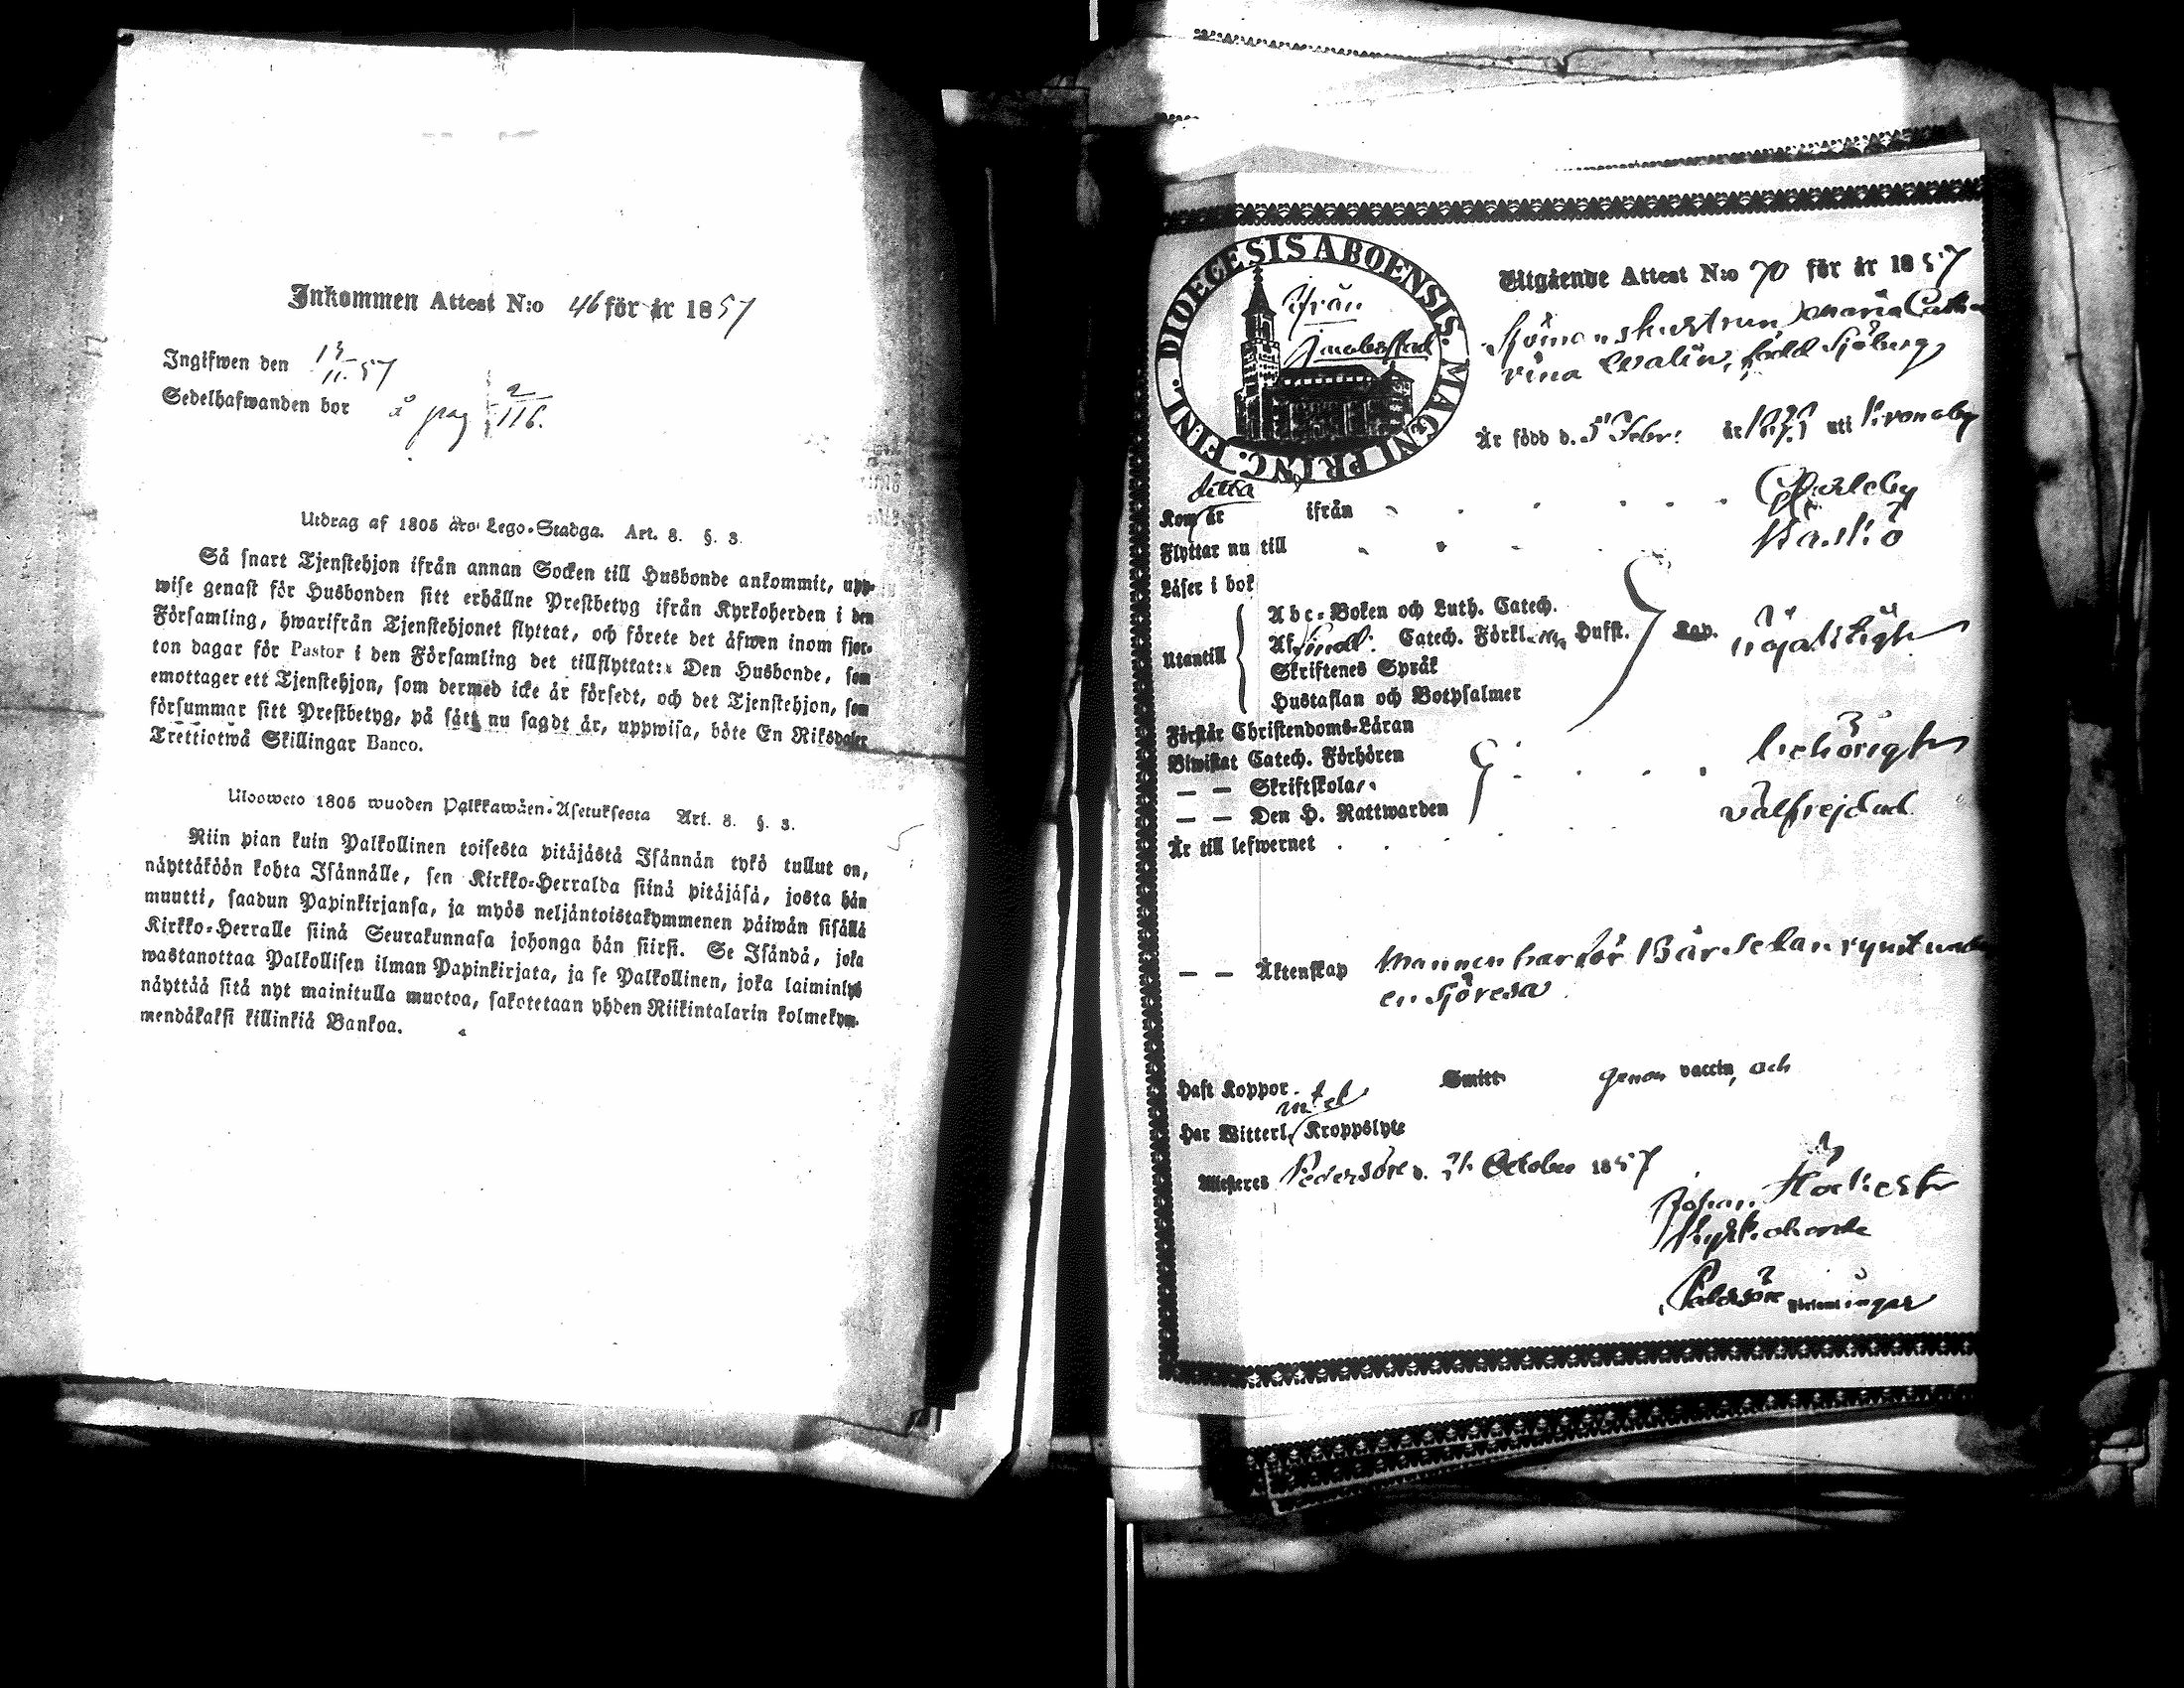 Inkommen Attest N:o 46 för år 1857
Ingifwen den 13/11 57
Sedelhafwanden bor å pag 2/116.
Utdrag af 1805 års Lego-Stadga. Art. 8. §. 3.
Så snart Tjenstehjon ifrån annan Socken till Husbonde ankommit, upp-
wise genast för Husbonden sitt erhållne Prestbetyg ifrån Kyrkoherden i den
Församling, hwarifrån Tjenstehjonet flyttat, och förete det äfwen inom fjor-
ton dagar för Pastor i den Församling det tillflyttat: Den Husbonde, som
emottager ett Tjenstehjon, som dermed icke är försedt, och det Tjenstehjon, som
försummar sitt Prestbetyg, på sätt nu sagdt är, uppwisa, böte En Riksdaler
Trettiotwå Skillingar Banco.
Ulosweto 1805 wuoden Palkkawäen-Asetuksesta Art. 8. §. 3.
Niin pian kuin Palkollinen toisesta pitäjästä Isännän tykö tullut on,
näyttäköön kohta Isännälle, sen Kirkko-Herralda siinä pitäjäsä, josta hän
muutti, saadun Papinkirjansa, ja myös neljäntoistakymmenen päiwän sisällä
Kirkko-Herralle siinä Seurakunnasa johonga hän siirsi. Se Isändä, joka
wastanottaa Palkollisen ilman Papinkirjata, ja se Palkollinen, joka laiminlyö
näyttää sitä nyt mainitulla muotoa, sakotetaan yhden Riikintalarin kolmekym-
mendäkaksi killinkiä Bankoa.
DIOECESIS ABOENSIS. MAGNI PRINC. FINL.
ifrån
Jacobstad
Utgående Attest N:o 70 för år 1857
Sjömanshustrun Maria Catha
rina Walin, född Sjöberg
Är född d. 5 Febr: år uti Kronoby
detta
Kom år ifrån Gkarleby
Flyttar nu till Kaskö
Läser i bok
Utantill
Abc-Boken och Luth. Catech.
Af Lindl: Catech. Förkl. Husst. Kap. nöjaktigt
Skriftenes Språk
Hustaflan och Botpsalmer
Förstår Christendoms-Läran
Biwistat Catech. Förhören behörigt
— — Skriftskola
— — Den H. Nattwarden
Är till lefwernet välfrejdad
— — Äktenskap Mannen har för rymt under
en sjöresa
Haft Koppor Smitt genom vaccin, och
intet
Har Witterl. Kroppslyte
Attesteres Pedersöre d. October 1857
Johan
Kyrkoherde
Pedersöre Församlingar